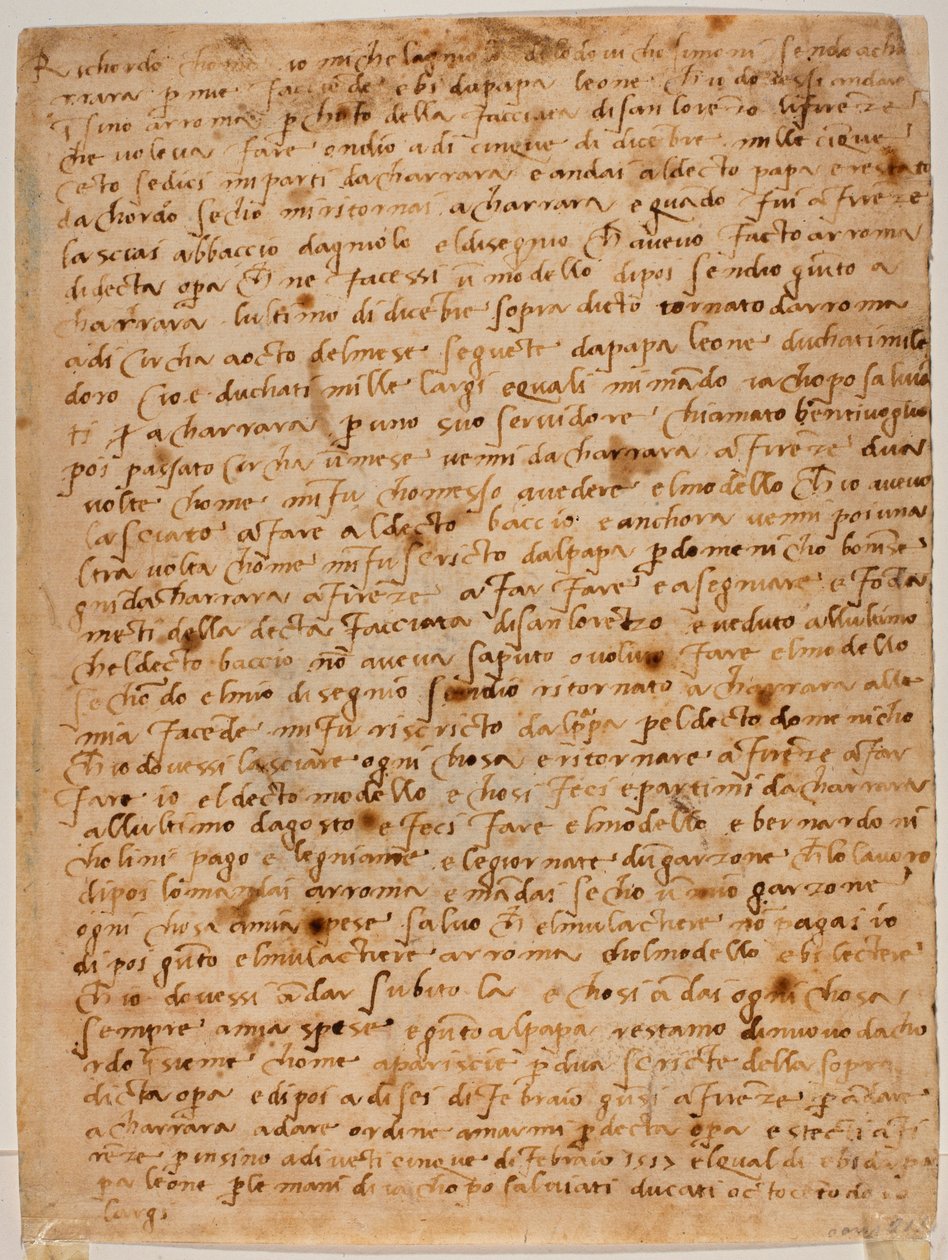 Richordo chome io michelagniolo di lodovicho simoni sendo a cha
rrara p mie faccēde ebi da papa leone ch'io dovessi andare
ĩsino arroma p chōto della facciata di san lorenzo di firenze
che voleva fare ondio adi cinque di dicēbre mille cīque
cēto sedici mi parti da charrara e andai al decto papa e restato
dachordo secho mi ritornai a charrara e quādo fui a firēze
lasciai abbaccio dagniolo el disegnio ch'avevo facto arroma
di decta opa ch ne facessi ū modello dipoi sendio giūto a
charrara lultimo di dicēbre sopra dicto tornato darroma
adi circha a octo del mese seguēte da papa leone duchati mile
doro cioe duchati mille largi e quali mi mādo iachopo salvia
ti ī a charrara p uno suo servidore chiamato bentivoglio
poi passato circha ū mese venni da charrara a firēze dua
volte chome mi fu chomesso a vedere el modello ch io avevo
lasciato a fare al decto baccio e anchora venni poi una
ltra volta chome mi fu scricto dal papa p domenicho boninse
gni da charrara a firēze a far fare e a segniare e fōda
mēti della decta facciata di san lorēzo e veduto allultimo
chel decto baccio nō aveva saputo o voluto fare el modello
sechōdo el mio disegnio sendio ritornato a charrara alle
mia facēde mi fu riscricto dal papa pel decto domenicho
ch io dovessi lasciare ogni chosa e ritornare a firēze a far
fare io el decto modello e chosi feci e partimi da charrara
allultimo dagosto e feci fare el modello e bernardo ni
cholini pago e legniame e le giornate dū garzone ch lo lavoro
dipoi lo mandai arroma e mādai secho ū mio garzone
ogni chosa a mia spese salvo ch el mulactiere nō pagai io
dipoi giūto el mulactiere arroma chol modello ebi lectere
ch io dovessi ādar subito la e chosi ādai ogni chosa
sempre a mia spese e giūto al papa restamo di nuovo dacho
rdo īsieme chome apariscie p dua scricte della sopra
dicta opa e dipoi a di sei di febraio giūsi a firēze p ādare
a charrara a dare ordine a marmi p decta opa e stecti a fi
rēze p insino a di vēti cinque di febraio 1517 el qual di ebi da pa
pa leone p le mani di iachopo salviati ducati octocēto doro
largi